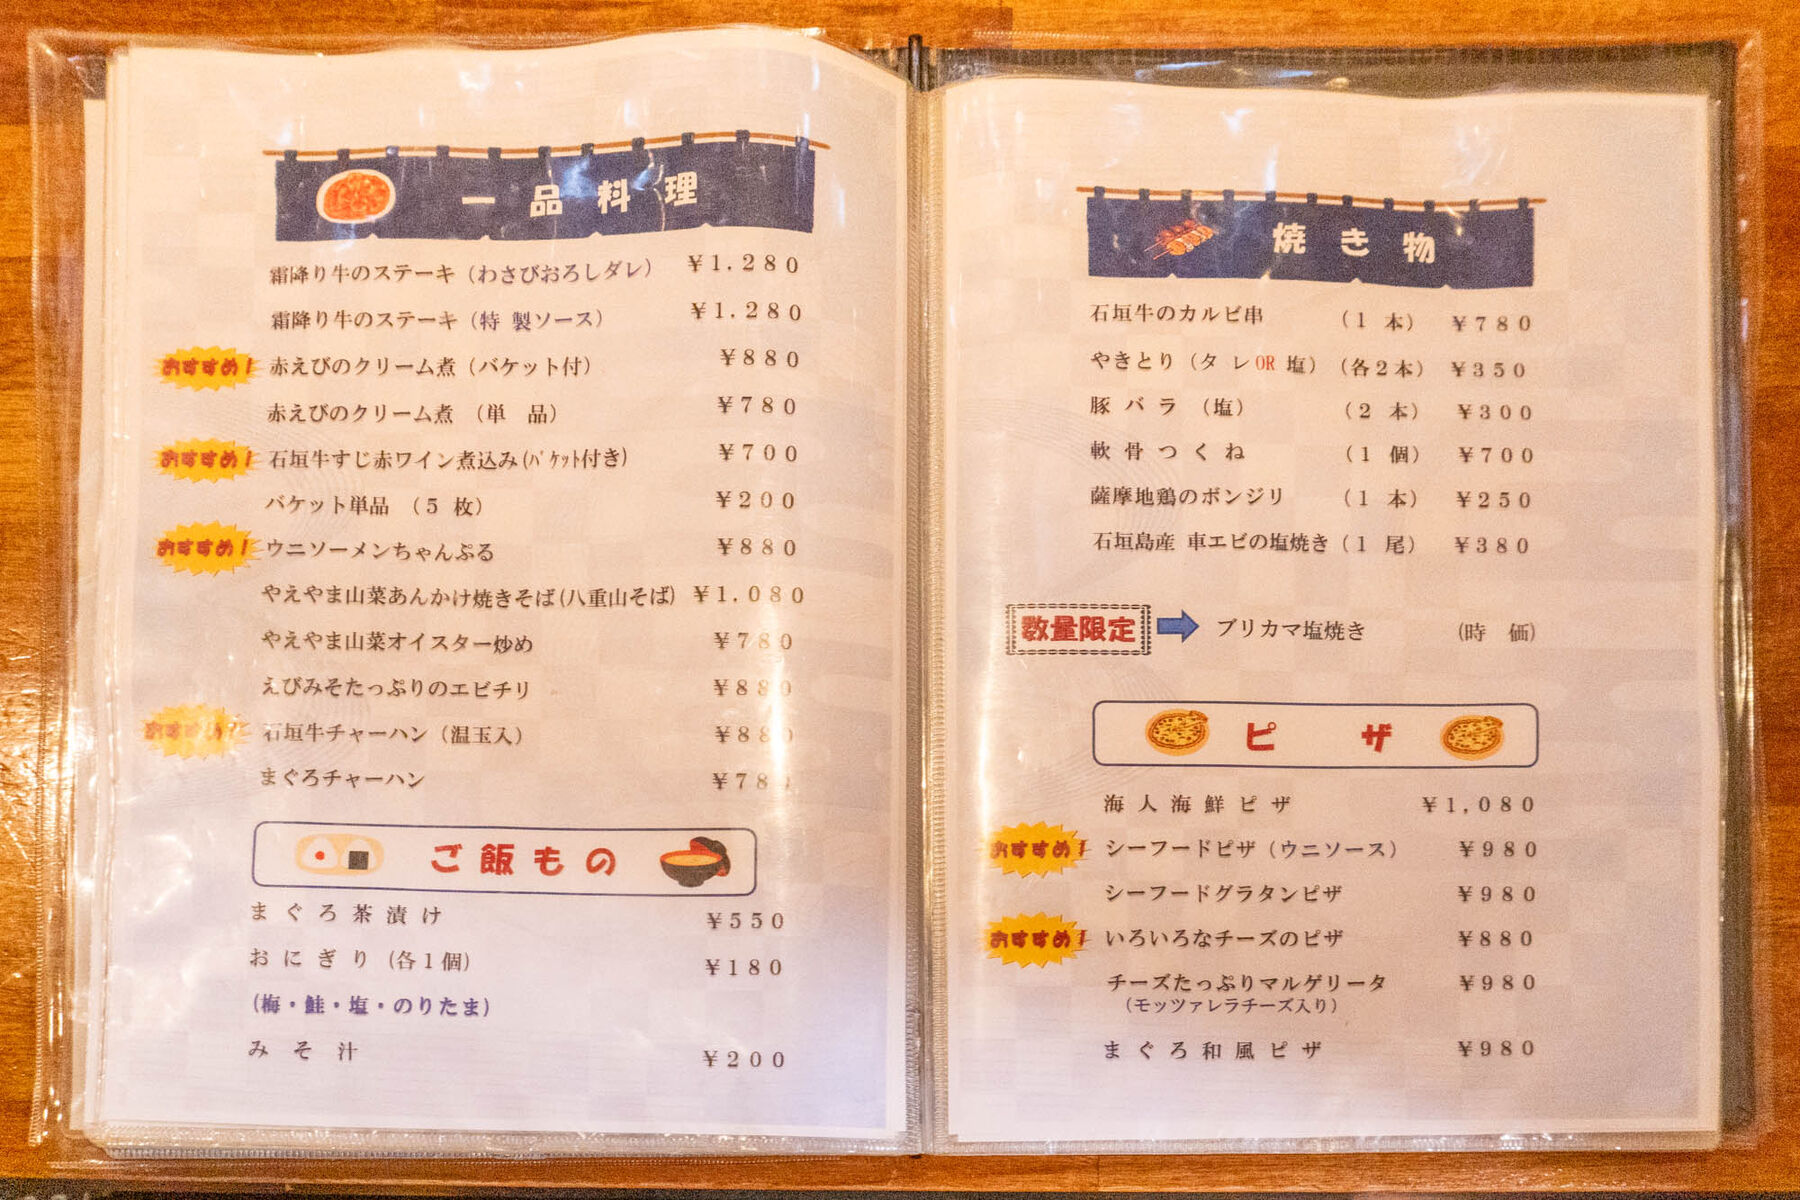 一品料理
霜降り牛のステーキ（わさびおろしダレ） ￥1.280
霜降り牛のステーキ（特 製ソース） ￥1.280
おすすめ！ 赤えびのクリーム煮（バケット付） ￥880
赤えびのクリーム煮 （単 品） ￥780
おすすめ！ 石垣牛すじ赤ワイン煮込み(ﾊﾞｹｯﾄ付き) ￥700
バケット単品 （5 枚） ￥200
おすすめ！ ウニソーメンちゃんぷる ￥880
やえやま山菜あんかけ焼きそば(八重山そば) ￥1,080
やえやま山菜オイスター炒め ￥780
えびみそたっぷりのエビチリ ￥880
おすすめ！ 石垣牛チャーハン（温玉入） ￥880
まぐろチャーハン ￥780
ご飯もの
まぐろ茶漬け ￥550
おにぎり（各1個） ￥180
（梅・鮭・塩・のりたま）
みそ汁 ￥200
焼き物
石垣牛のカルビ串 （1 本） ￥780
やきとり（タ レOR 塩）（各2本） ￥350
豚バラ （塩） （2 本） ￥300
軟骨つくね （1 個） ￥700
薩摩地鶏のボンジリ （1 本） ￥250
石垣島産 車エビの塩焼き（1 尾） ￥380
数量限定 ブリカマ塩焼き （時 価）
ピザ
海人海鮮ピザ ￥1,080
おすすめ！ シーフードピザ（ウニソース） ￥980
シーフードグラタンピザ ￥980
おすすめ！ いろいろなチーズのピザ ￥880
チーズたっぷりマルゲリータ ￥980
（モッツァレラチーズ入り）
まぐろ和風ピザ ￥980